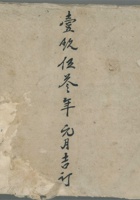 壹玖伍叁年元月吉订